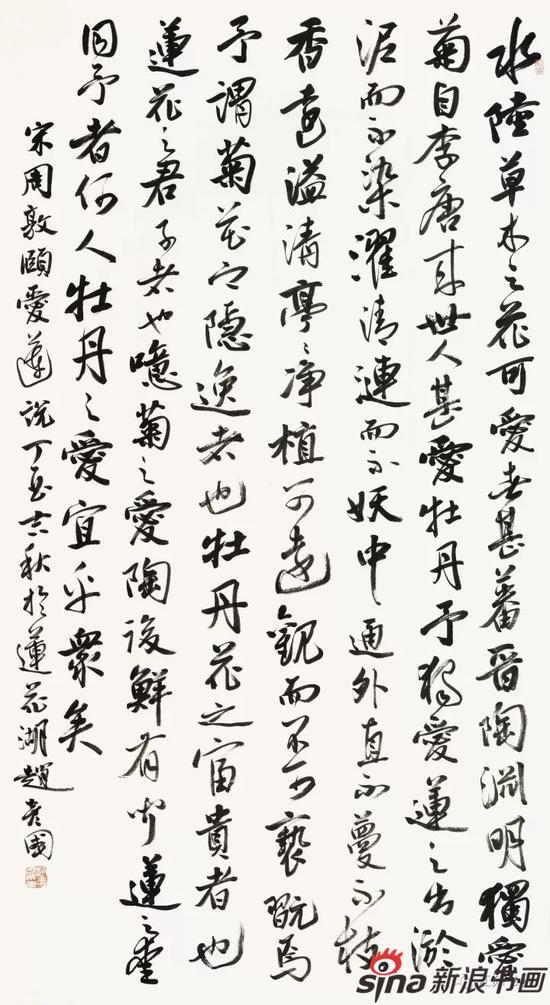 水陸草木之花可愛者甚蕃晉陶淵明獨愛
菊自李唐來世人甚愛牡丹予獨愛蓮之出淤
泥而不染濯清漣而不妖中通外直不蔓不枝
香遠溢清亭〻淨植可遠觀而不可褻翫焉
予謂菊花之隱逸者也牡丹花之富貴者也
蓮花之君子者也噫菊之愛陶後鮮有聞蓮之愛
同予者何人牡丹之愛宜乎衆矣
宋周敦頤愛蓮說丁酉秋於蓮花湖趙國
sina新浪书画